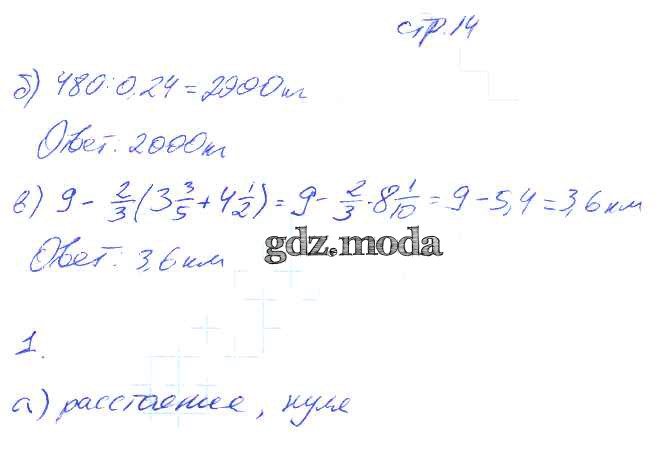 стр. 14
б) 480 : 0,24 = 2000 кг
Ответ: 2000 кг
в) 9 - 2/3 (3 3/5 + 4 1/2) = 9 - 2/3 · 8 1/10 = 9 - 5,4 = 3,6 км
gdz.moda
Ответ: 3,6 км
1.
а) расстояние, нуля